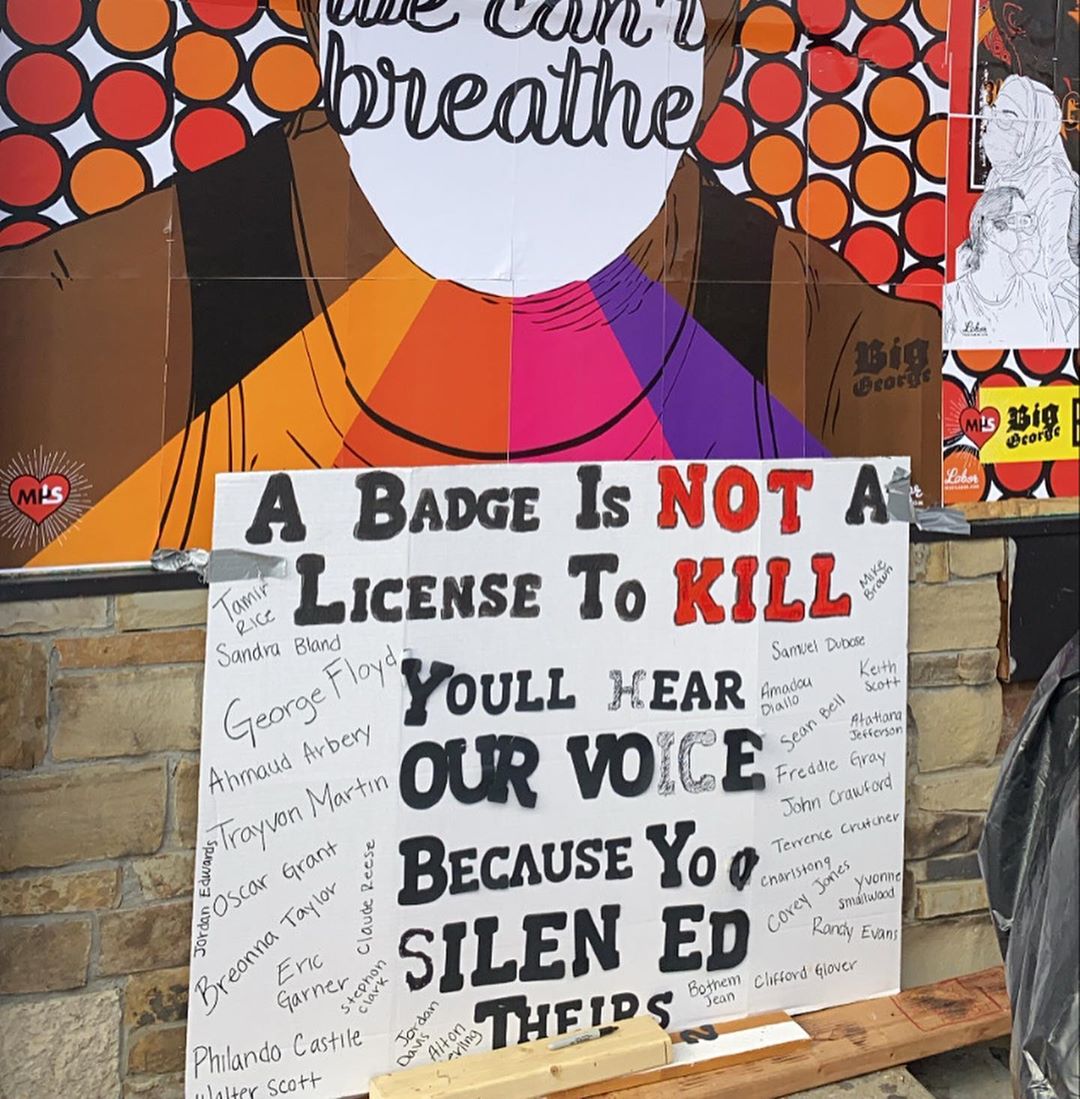 we can't
breathe
Big
George
MPLS
MPLS
Big
George
Labor
Labor
A BADGE IS NOT A
LICENSE TO KILL
YOULL HEAR
OUR VOICE
BECAUSE YO
SILEN ED
THEIRS
Tamir
Rice
Sandra Bland
George Floyd
Ahmaud Arbery
Trayvon Martin
Jordan Edwards
Oscar Grant
Breonna Taylor
Claude Reese
Eric
Garner
Stephon
Clark
Philando Castile
Walter Scott
Jordan
Davis
Alton
erling
Mike
Brown
Samuel Dubose
Keith
Scott
Amadou
Diallo
Sean Bell
Atatiana
Jefferson
Freddie Gray
John Crawford
Terrence Crutcher
charistong
Corey Jones
Yvonne
smallwood
Randy Evans
Clifford Glover
Bothem
Jean
2